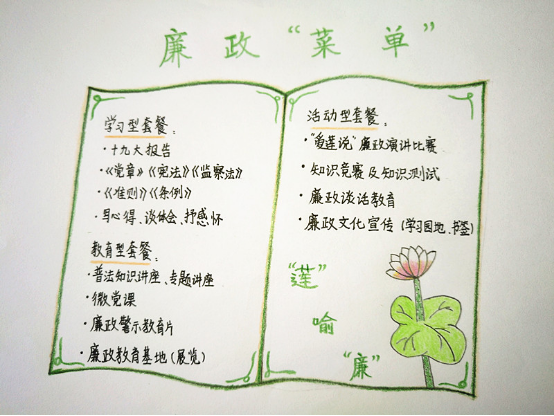 廉政“菜单”
学习型套餐：
·十九大报告
·《党章》《宪法》《监察法》
·《准则》《条例》
·写心得、谈体会、抒感怀
教育型套餐：
·普法知识讲座、专题讲座
·微党课
·廉政警示教育片
·廉政教育基地(展览)
活动型套餐：
·“爱莲说”廉政演讲比赛
·知识竞赛及知识测试
·廉政谈话教育
·廉政文化宣传(学习园地、书签)
“莲”
喻
“廉”